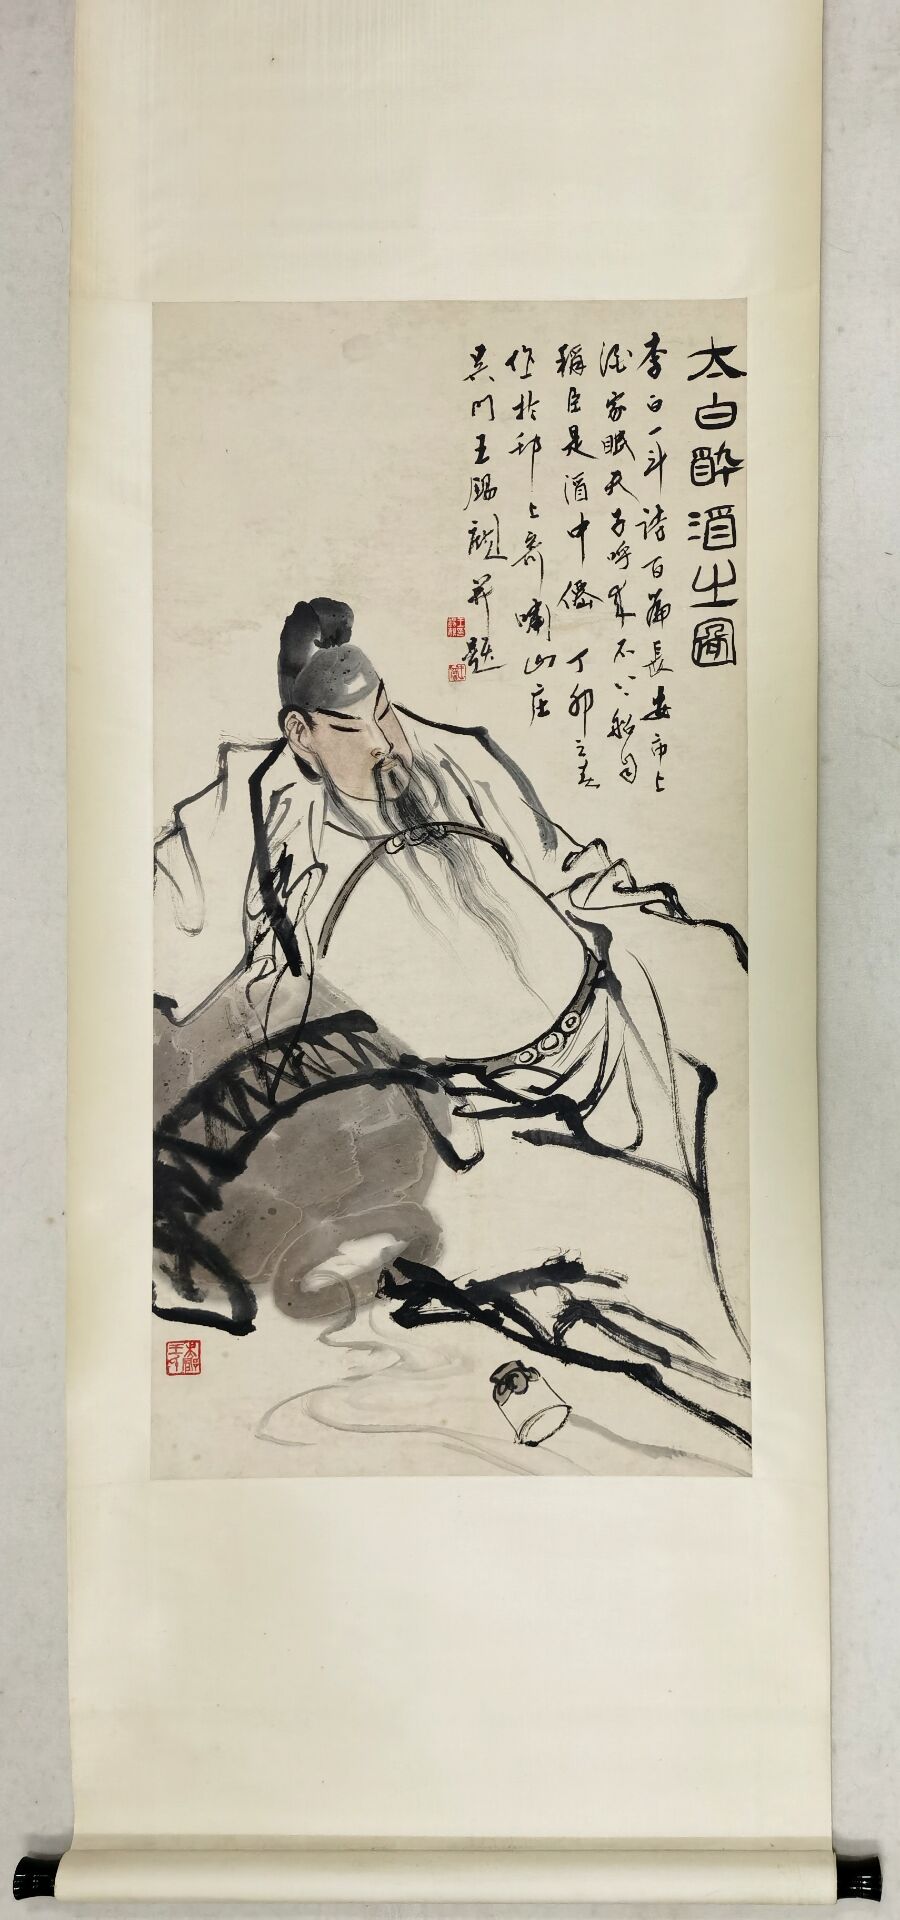 太白醉酒之圖
李白一斗詩百篇長安市上
酒家眠天子呼來不上船自
稱臣是酒中僊 丁卯之春
作於邗上齋嘯山庄
吳門王錫麒并題